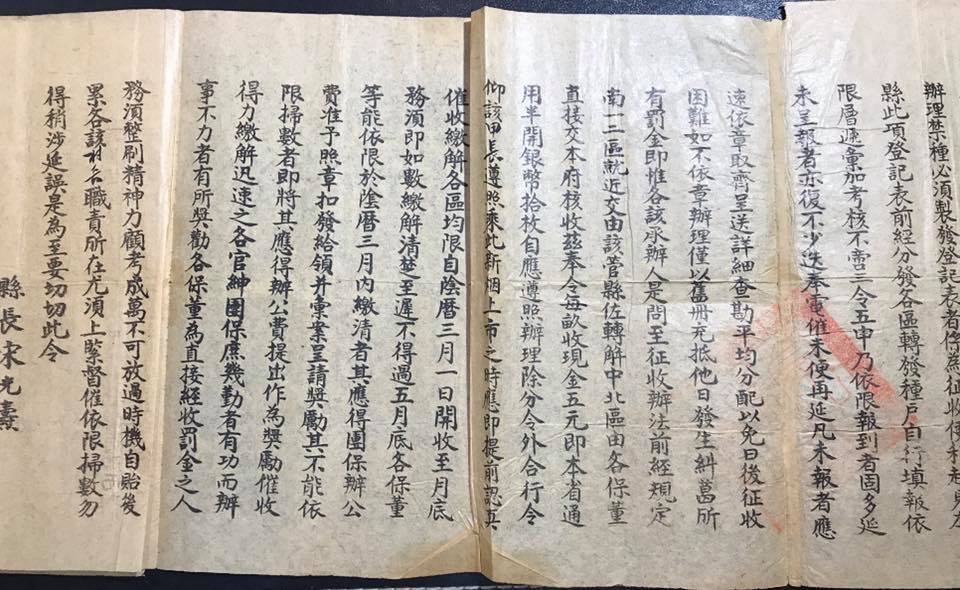 辦理禁種必須製發登記表者係為征收便利起見本
縣此項登記表前經分發各區轉發種戶自行填報依
限層遞彙加考核不啻三令五申乃依限報到者固多延
未呈報者亦復不少迭奉電催未便再延凡未報者應
速依章取齊呈送詳細查勘平均分配以免日後征收
困難如不依章辦理僅以舊冊充抵他日發生糾葛所
有罰金即惟各該承辦人是問至征收辦法前經規定
南一二區就近交由該管縣佐轉解中北區由各保董
直接交本府核收茲奉令每畝收現金五元即本省通
用半開銀幣拾枚自應遵照辦理除分令外合行令
仰該甲長遵照乘此新烟上市之時應即提前認真
催收繳解各區均限自陰曆三月一日開收至月底
務須即如數繳解清楚至遲不得過五月底各保董
等能依限於陰曆三月內繳清者其應得團保辦公
費准予照章扣發給領并彙案呈請獎勵其不能依
限掃數者即將其應得辦公費提出作為獎勵催收
得力繳解迅速之各官紳團保庶幾勤者有功而辦
事不力者有所獎勸各保董為直接經收罰金之人
務須整刷精神力顧考成萬不可放過時機自貽後
累各該村名職責所在尤須上緊督催依限掃數勿
得稍涉延誤是為至要切切此令
縣長宋光燾